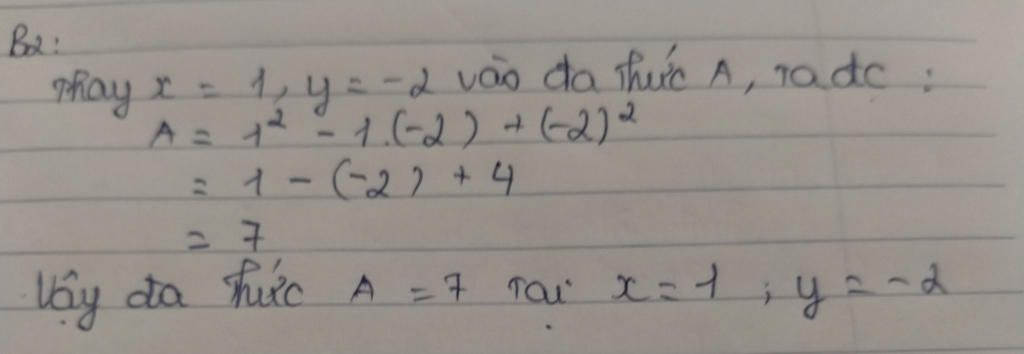 B2:
Thay x = 1, y = -2 vào đa thức A, ta đc :
A = 1² - 1.(-2) + (-2)²
= 1 - (-2) + 4
= 7
Vậy đa thức A = 7 tại x = 1 ; y = -2